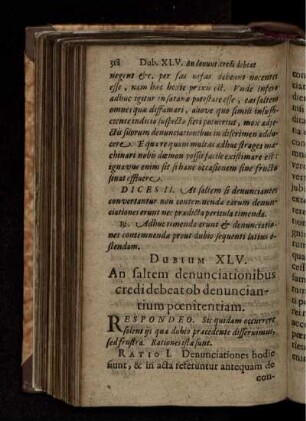 318 Dub. XLV. An denunt. credi debeat
negent &c. per fas nefas debeant nocentes
esse, nam hac hodie praxis est. Unde infero
adhuc igitur in satana potestate esse, eas saltem
omnes quæ diffamari, atque quo simili insuffi-
ciente indicio suspectæ fieri potuerint, mox adje-
ctis suorum denunciationibus in discrimen addu-
cere. Ex qua re quam multas adhuc strages ma-
chinari nobis dæmon possit facile existimare est:
ignavus enim sit si hanc occasionem sine fructu
sinat effluere.
DICES II. At saltem si denunciantes
convertantur non contemnenda earum denun-
ciationes erunt nec prædicta pericula timenda.
R. Adhuc timenda erunt & denunciatio-
nes contemnenda prout dubio sequenti latius o-
stendam.
DUBIUM XLV.
An saltem denunciationibus
credi debeat ob denuncian-
tium pœnitentiam.
RESPONDEO. Sic quidam occurrere
solent ijs qua dubio præcedente disseruimus,
sed frustra. Rationes istæ sunt.
RATIO I. Denunciationes hodie
fiunt, & in acta referuntur antequam de
con-